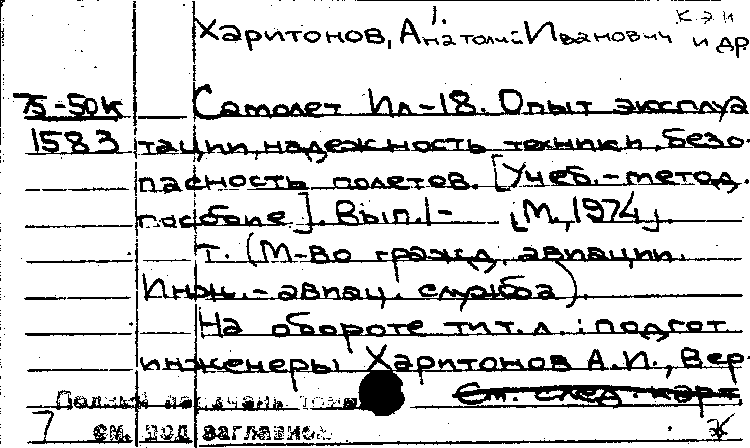 1. к э и
Харитонов, Анатолий Иванович и др
75-50к Самолет Ил-18. Опыт эксплуа
1583 тации, надежность техники, безо-
пасность полетов. [Учеб.-метод.
пособие]. Вып. 1- [М., 1974].
т. (М-во гражд. авиации.
Инж.-авиац. служба).
На обороте тит. л.: подгот.
инженеры Харитонов А.И., Вер-
См. след. карт.
Полный перечень томов
7 см. под заглавием ж